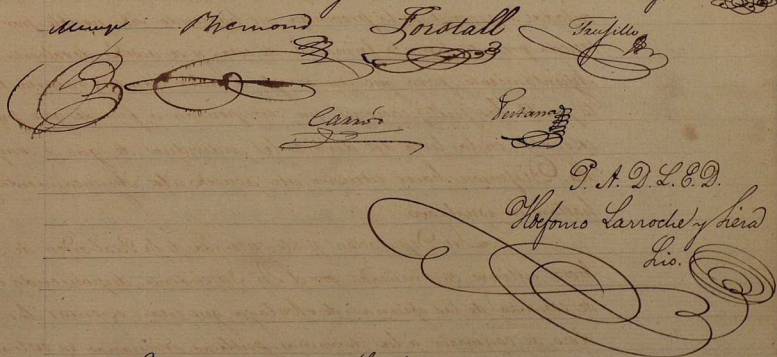 Bremond Forstall Trujillo
Carrós Pestana
P. A. D. L. E. D.
Ildefonso Larroche y Siera
Srio.